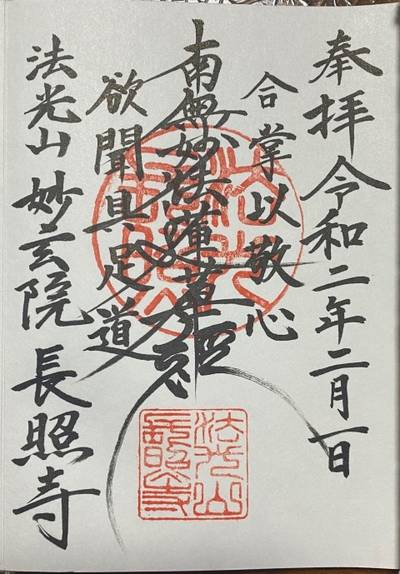 奉拝 令和二年二月一日
合掌以敬心
南無妙法蓮華経
欲聞具足道
法光山 妙玄院 長照寺
法光山
長照寺